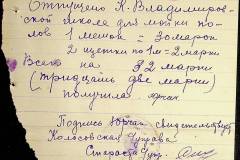 Отпущено К. Владимиров-
ской школе для мойки по-
лов 1 мешок = 30 марок
2 щетки по 1 м = 2 марки
Всего на 32 марки
(тридцать две марки)
получила
Подпись
Колосовская Управа
Староста